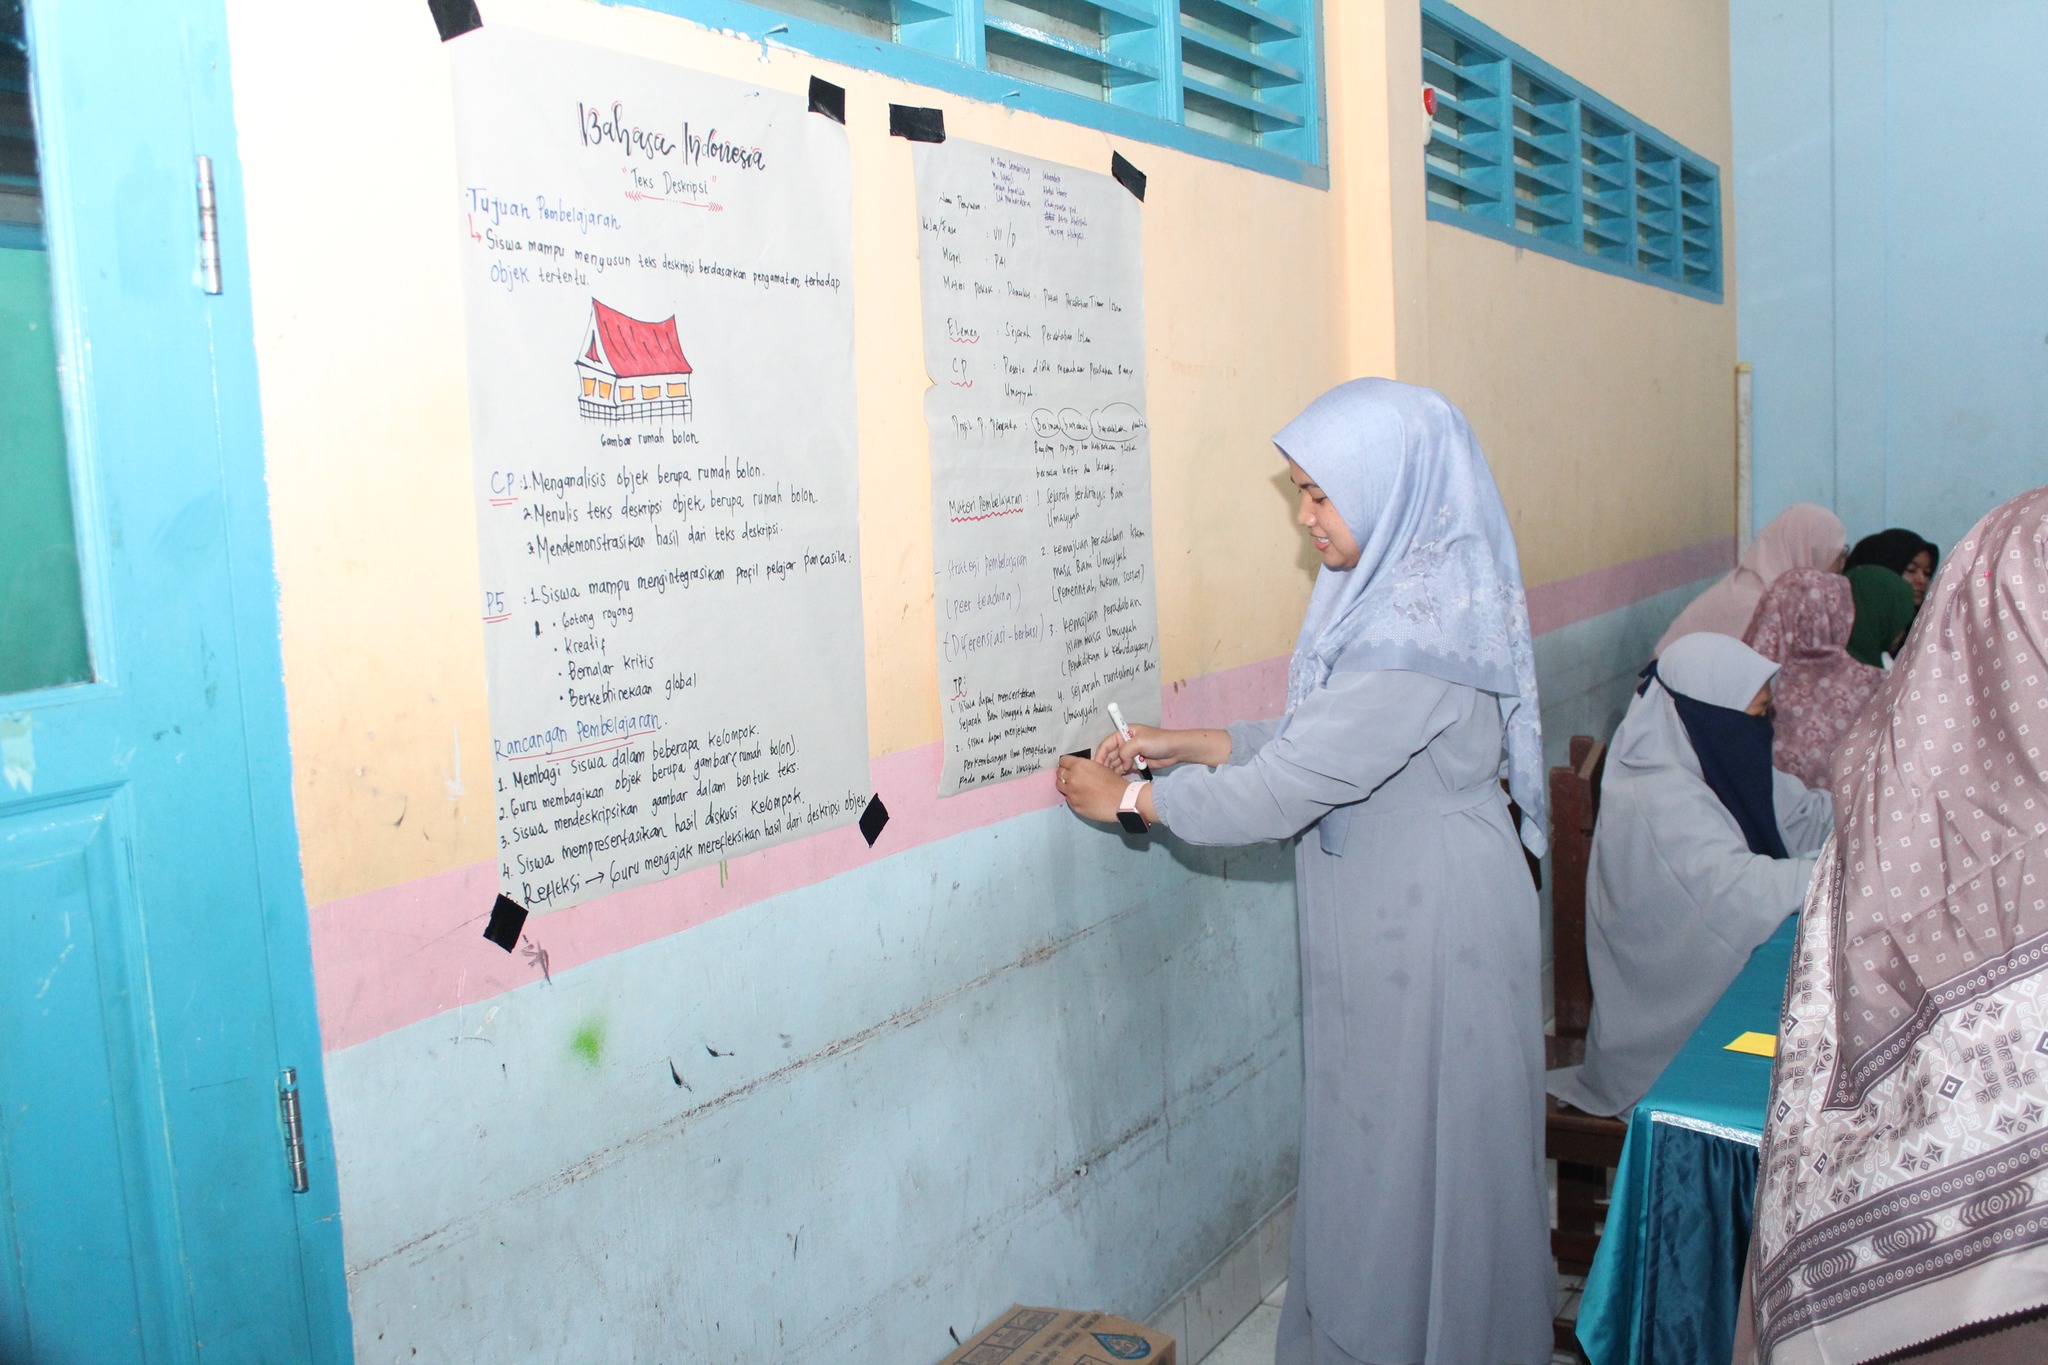 Bahasa Indonesia
"Teks Deskripsi"
Tujuan Pembelajaran
Siswa mampu menyusun teks deskripsi berdasarkan pengamatan terhadap
Objek tertentu.
Gambar rumah bolon
CP : 1. Menganalisis objek berupa rumah bolon.
2. Menulis teks deskripsi objek berupa rumah bolon.
3. Mendemonstrasikan hasil dari teks deskripsi.
P5 : 1. Siswa mampu mengintegrasikan profil pelajar pancasila:
• Gotong royong
• Kreatif
• Bernalar kritis
• Berkebhinekaan global
Rancangan Pembelajaran.
1. Membagi siswa dalam beberapa kelompok.
2. Guru membagikan objek berupa gambar (rumah bolon).
3. Siswa mendeskripsikan gambar dalam bentuk teks.
4. Siswa mempresentasikan hasil diskusi kelompok.
5. Refleksi → Guru mengajak merefleksikan hasil dari deskripsi objek
Kelas/Fase : VII / D
Mapel : PAI
Materi Pokok :
Elemen : Sejarah Peradaban Islam
CP : Peserta didik memahami Peradaban Bani
Umayyah.
Materi Pembelajaran : 1. Sejarah berdirinya Bani
Umayyah
2. Kemajuan peradaban Islam
masa Bani Umayyah
(pemerintah, hukum, sosial)
3. Kemajuan peradaban
Islam masa Umayyah
(Pendidikan & Kebudayaan)
4. Sejarah runtuhnya Bani
Umayyah
- Strategi Pembelajaran
(peer teaching)
(Diferensiasi - berbasis)
TP:
1. Siswa dapat menceritakan
Sejarah Bani Umayyah di Andalusia
2. Siswa dapat menjelaskan
Perkembangan Ilmu pengetahuan
Pada masa Bani Umayyah